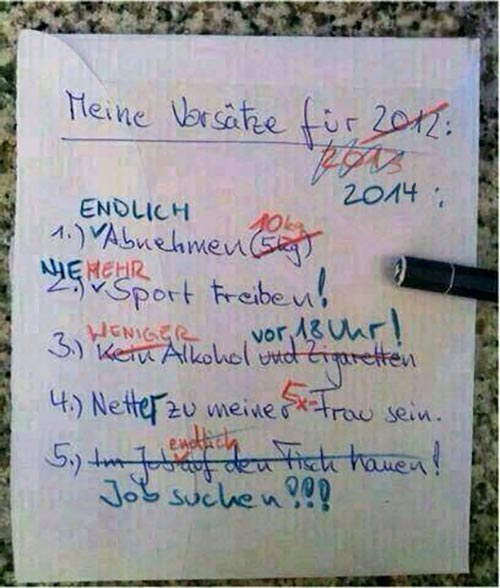 Meine Vorsätze für 2012:
2013
2014:
ENDLICH
10kg
1.) Abnehmen (5kg)
NIE MEHR
2.) Sport treiben!
WENIGER vor 18 Uhr!
3.) Kein Alkohol und Zigaretten
4.) Netter zu meiner Ex-Frau sein.
endlich
5.) Im Job auf den Tisch hauen!
Job suchen!!!